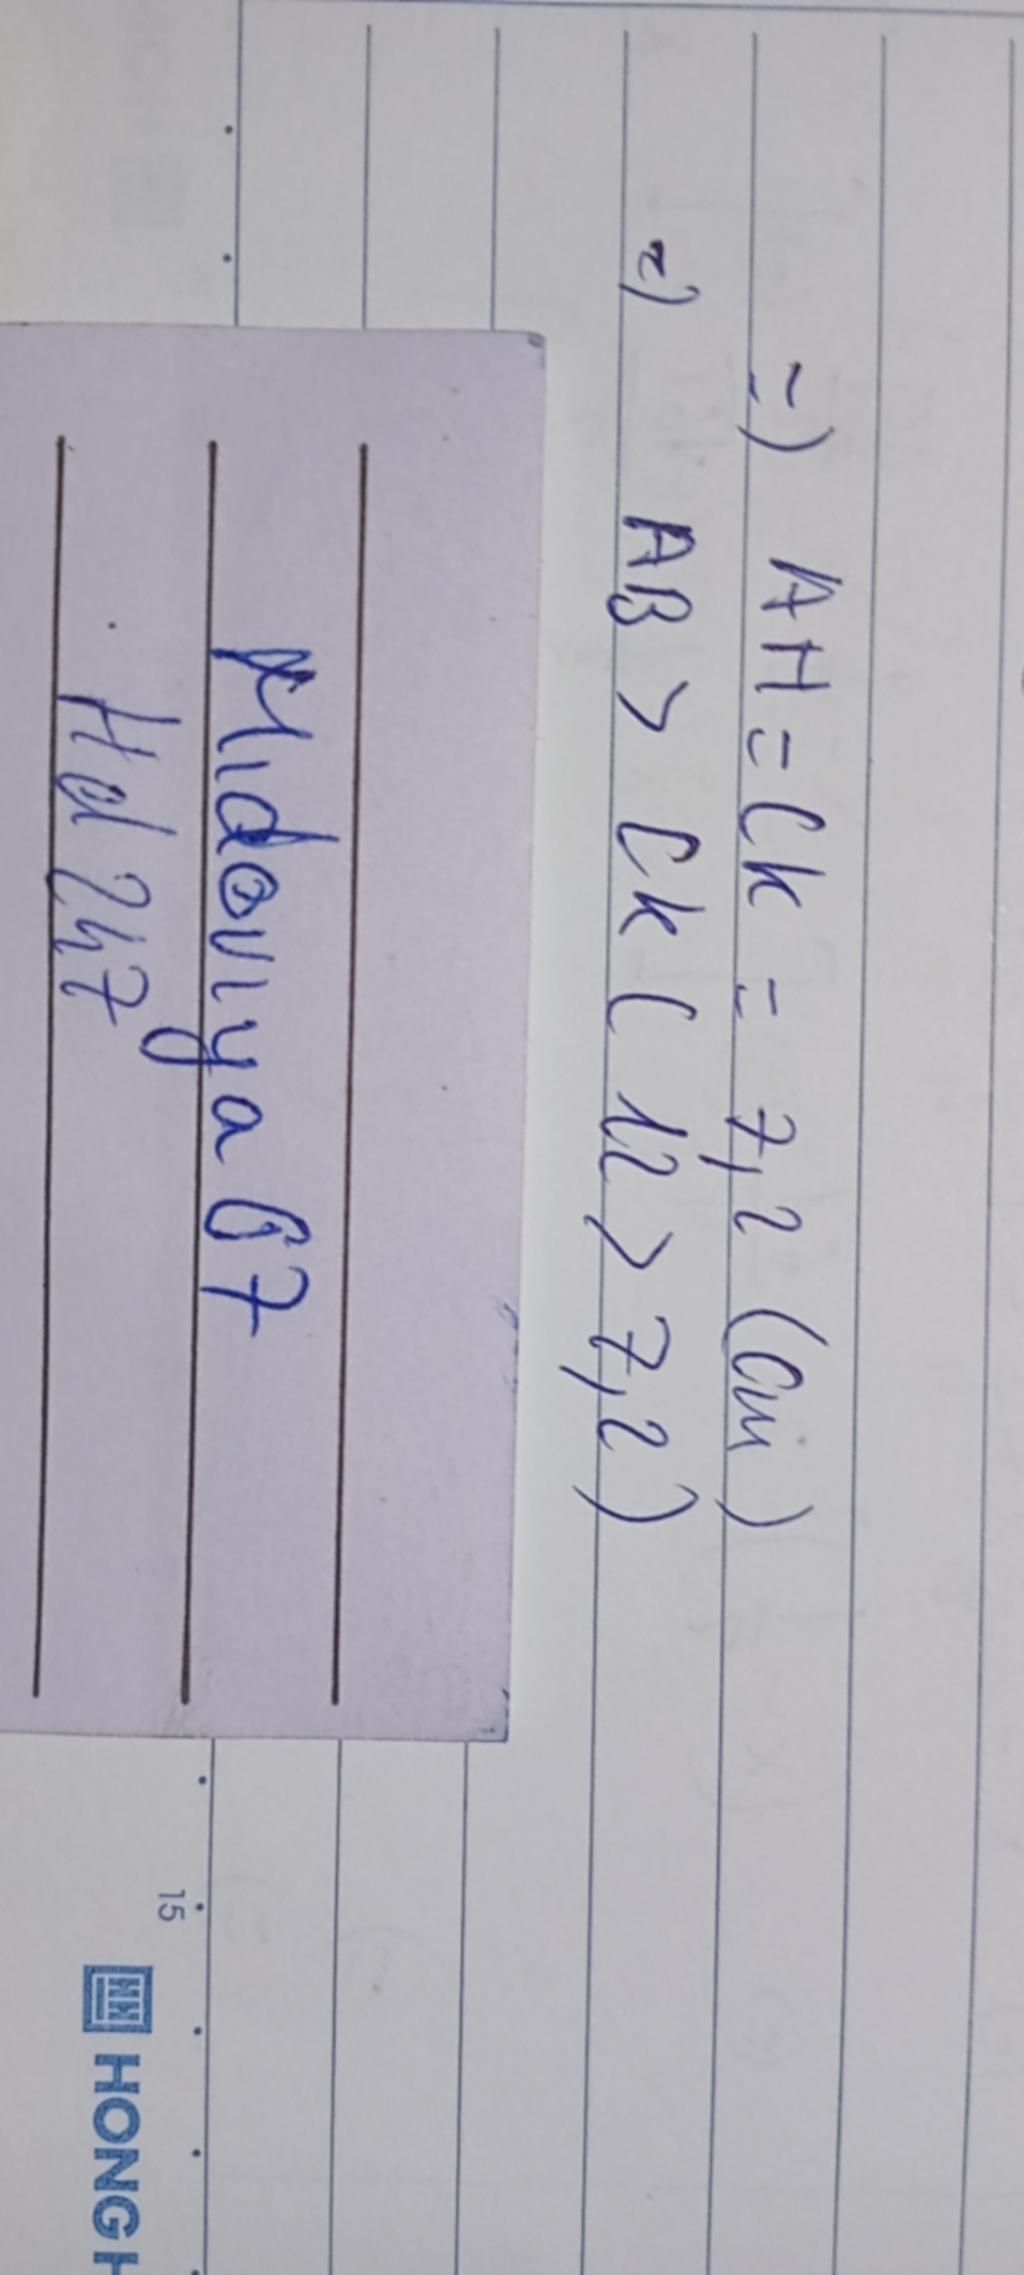 =) AH = CK = 7,2 (cm)
2) AB > CK ( 12 > 7,2 )
Midoriya67
Hd 247
15
HONG H